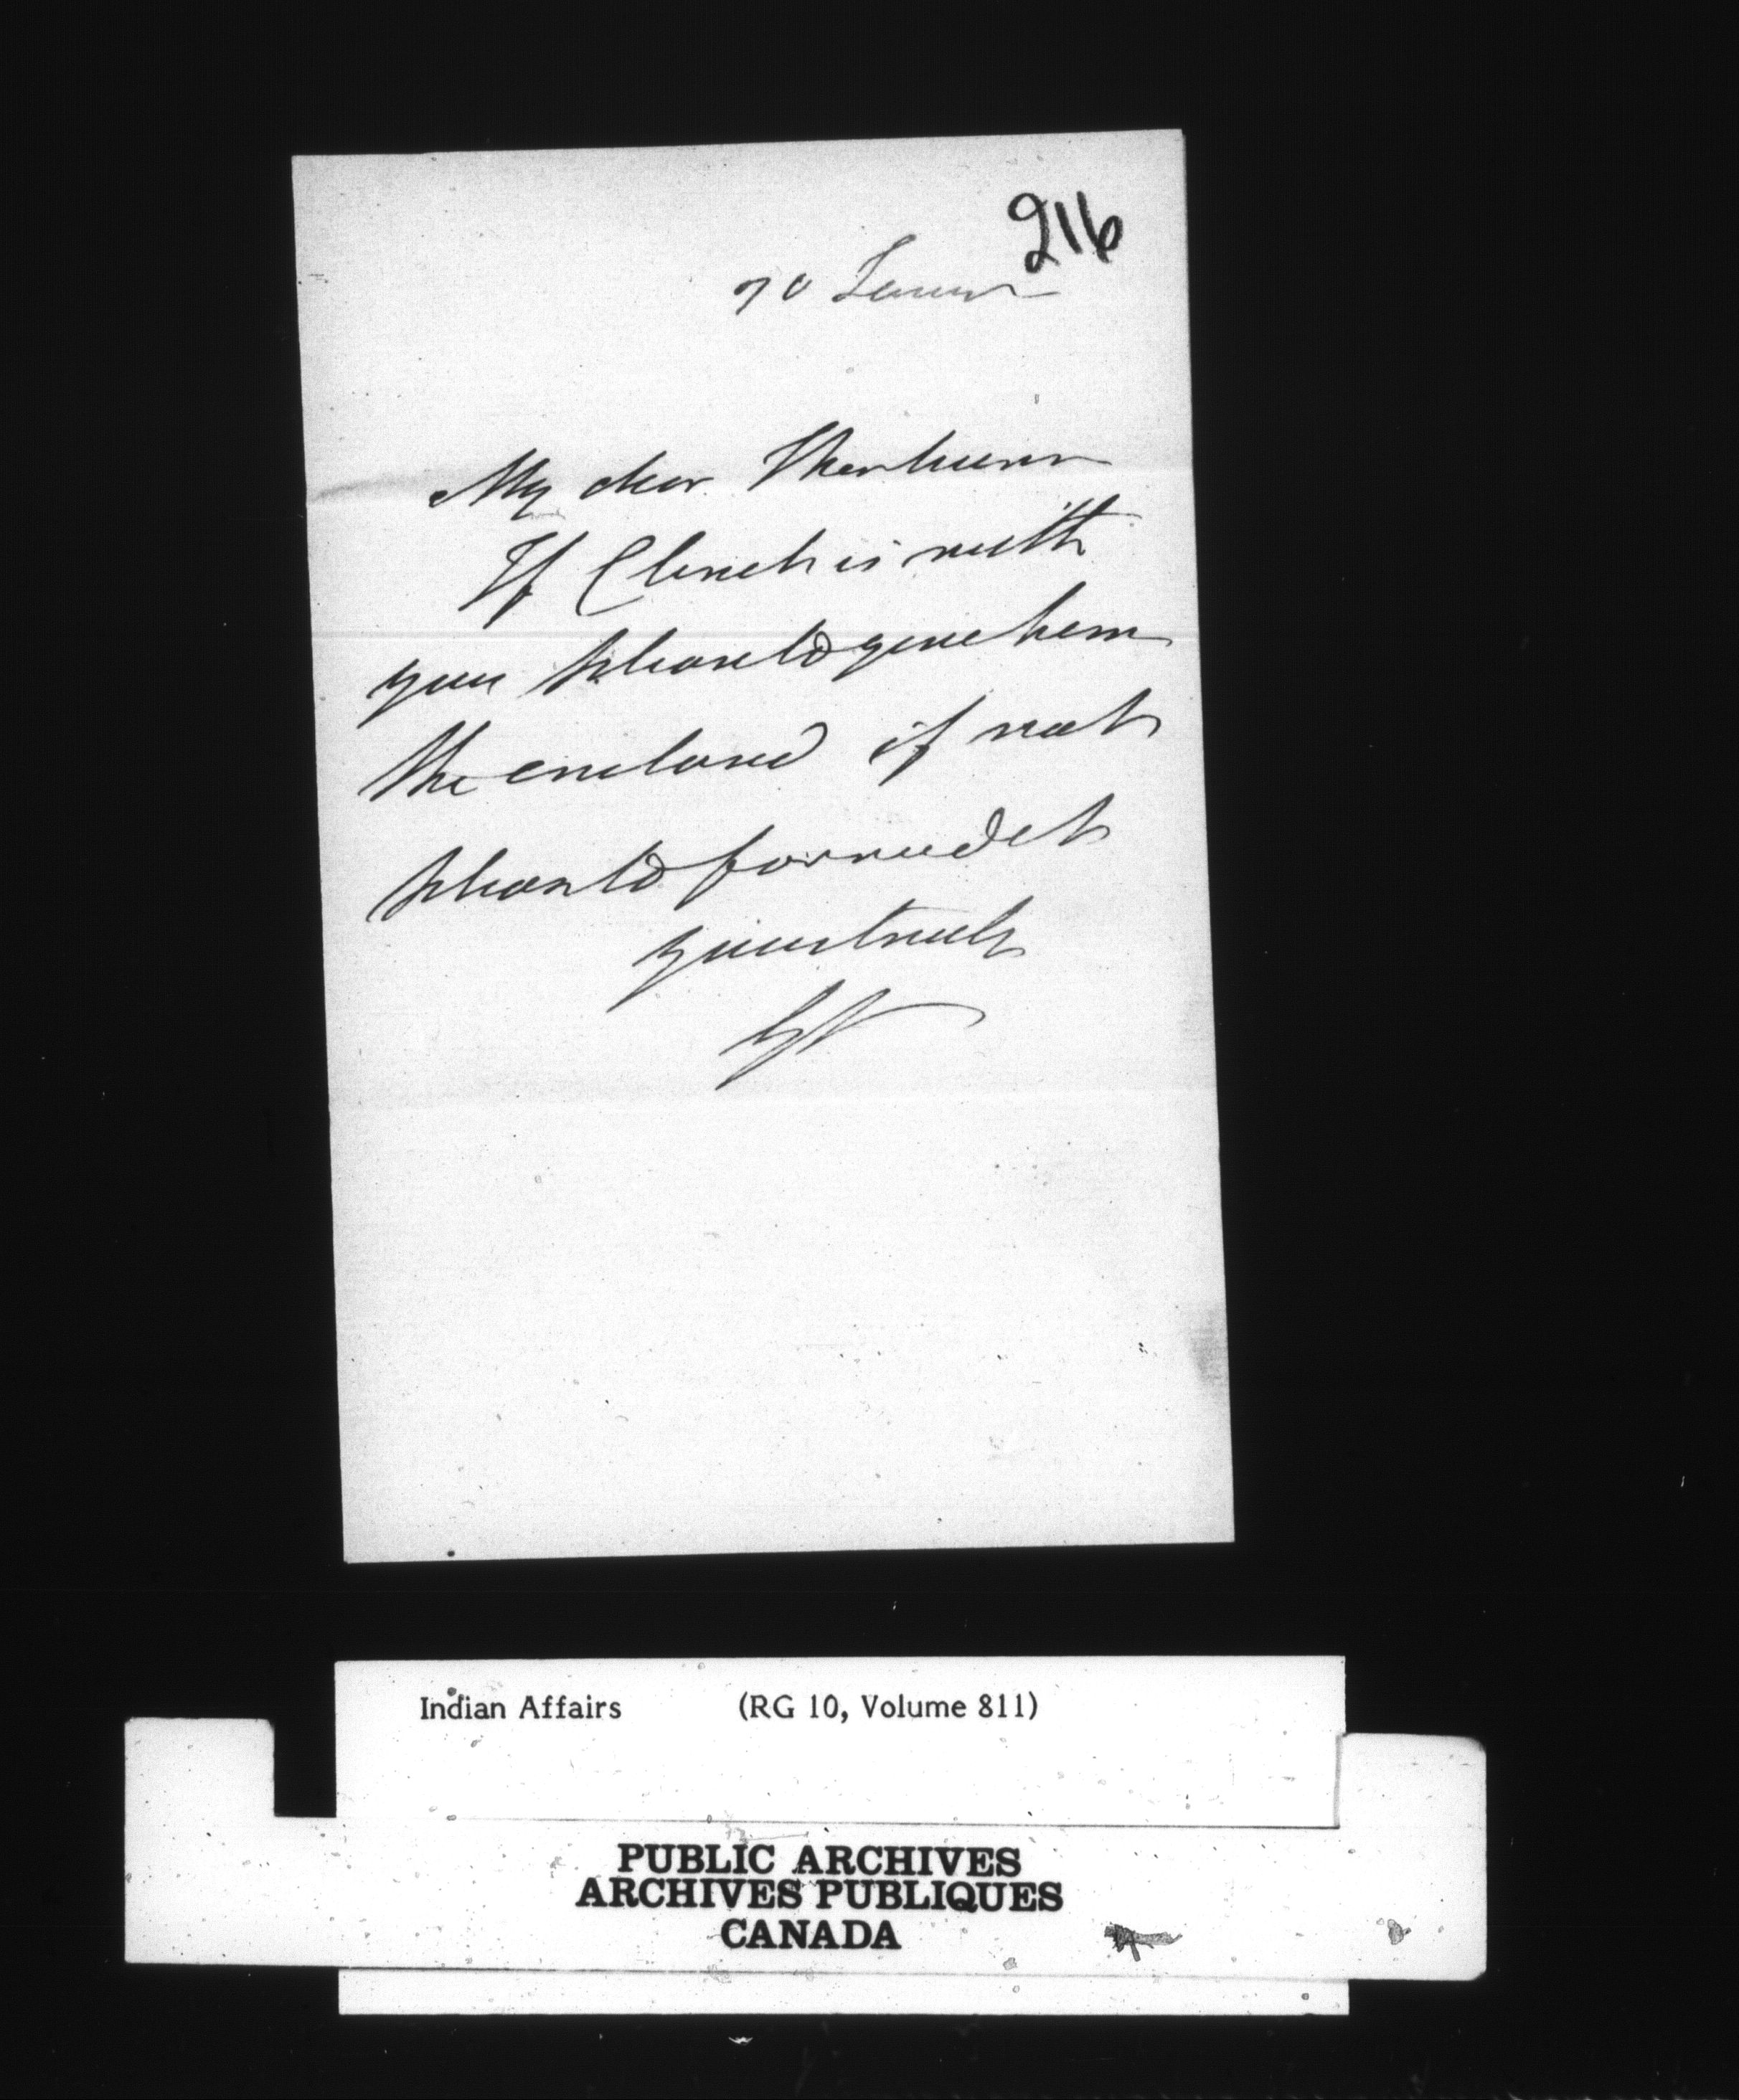 216
My dear Thorburn
If Clench is with
you please to give him
the enclosed if not
please to forward it
yours truly
Indian Affairs (RG 10, Volume 811)
PUBLIC ARCHIVES
ARCHIVES PUBLIQUES
CANADA